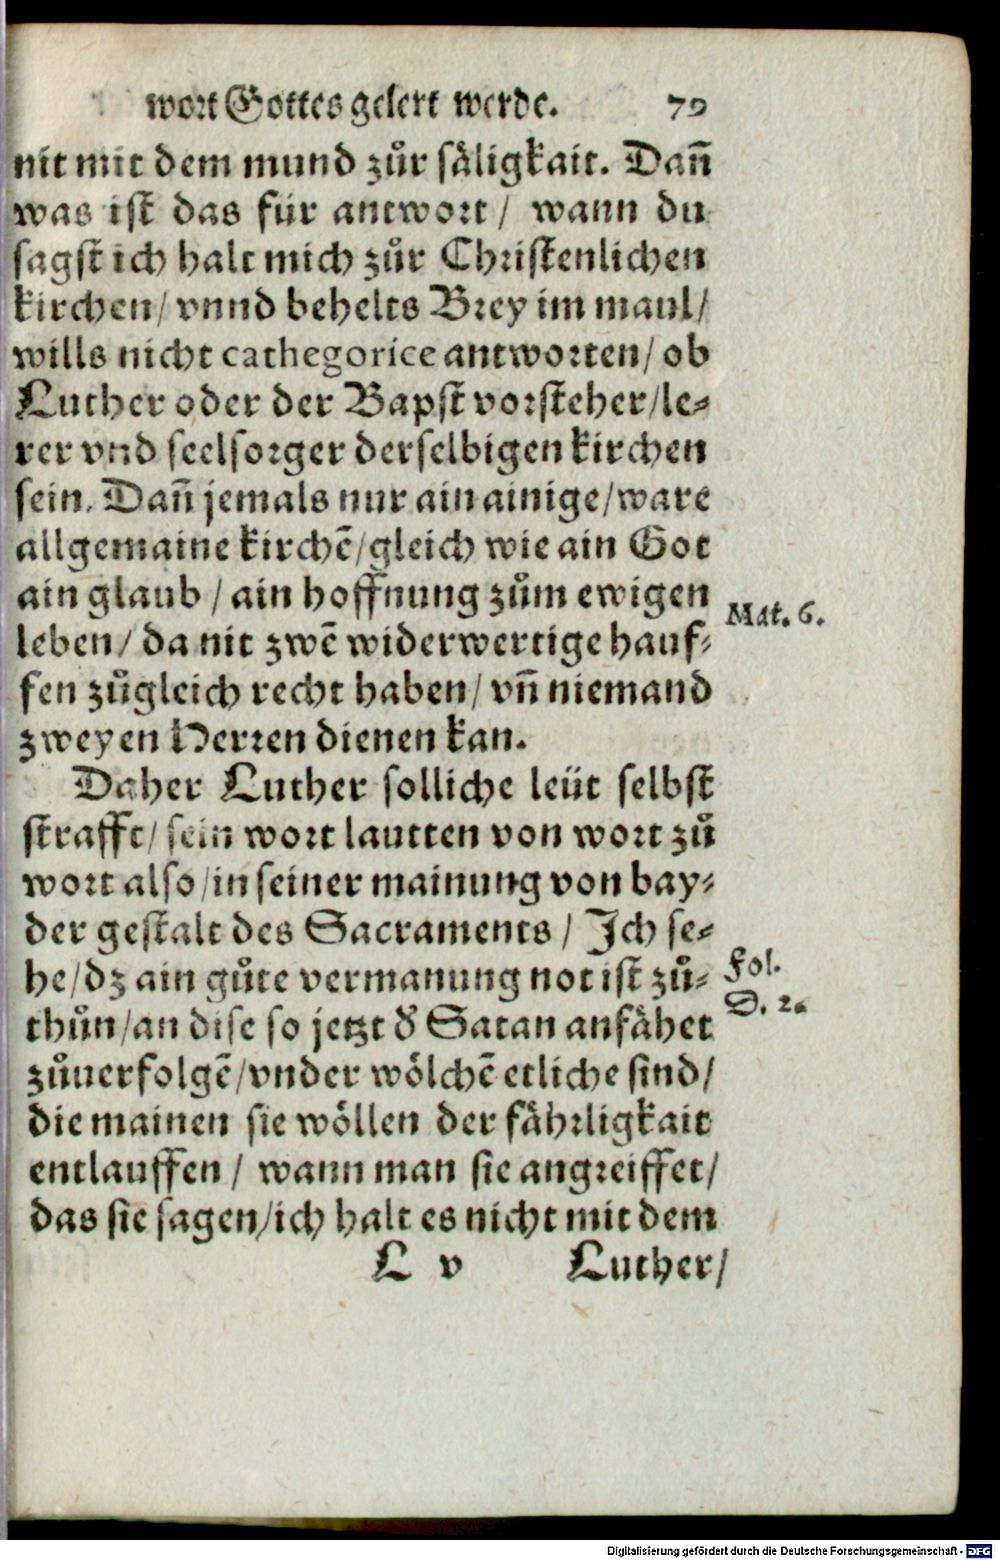 wort Gottes gelert werde. 79
nit mit dem mund zůr säligkait. Dañ
was ist das für antwort / wann du
sagst ich halt mich zůr Christenlichen
kirchen / vnnd behelts Brey im maul /
wills nicht cathegorice antworten / ob
Luther oder der Bapst vorsteher / le⸗
rer vnd seelsorger derselbigen kirchen
sein. Dañ jemals nur ain ainige / ware
allgemaine kirchē / gleich wie ain Got
ain glaub / ain hoffnung zům ewigen
Mat. 6.
leben / da nit zwē widerwertige hauf⸗
fen zůgleich recht haben / vñ niemand
zweyen Herren dienen kan.
Daher Luther solliche leüt selbst
strafft / sein wort lautten von wort zů
wort also / in seiner mainung von bay⸗
der gestalt des Sacraments / Ich se⸗
he / dz ain gůte vermanung not ist zů⸗
Fol.
D. 2.
thůn / an dise so jetzt d̕ Satan anfähet
zůuerfolgē / vnder wölchē etliche sind /
die mainen sie wöllen der fährligkait
entlauffen / wann man sie angreiffet /
das sie sagen / ich halt es nicht mit dem
L v Luther /
Digitalisierung gefördert durch die Deutsche Forschungsgemeinschaft - DFG